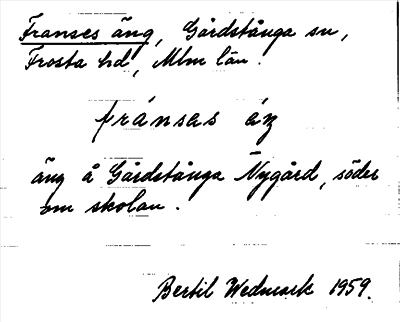 Franses äng, Gårdstånga sn,
Frosta hd, Mlm län.
fránsas áŋ
äng å Gårdstånga Nygård, söder
om skolan.
Bertil Wedmark 1959.